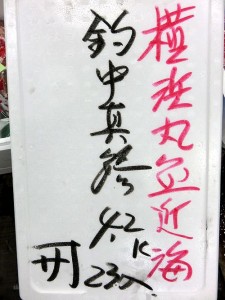 横浜丸近海
釣中真鯵 4.2K
23入